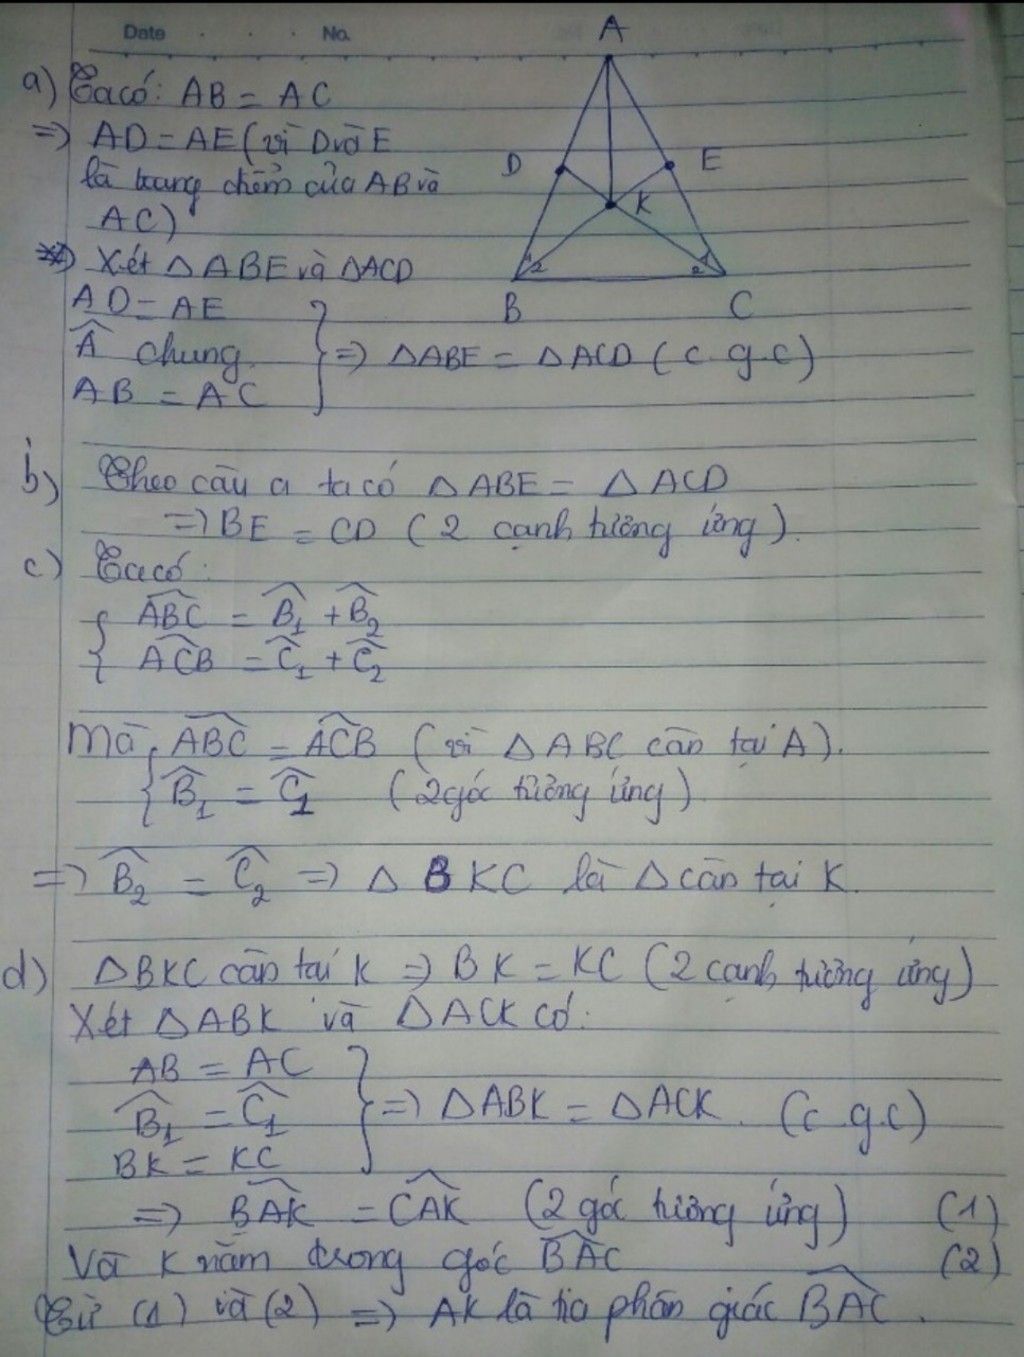 Date . . . No.
A
a) Ta có: AB = AC
=> AD = AE (vì D và E
D E
là trung điểm của AB và
K
AC)
=> Xét △ABE và △ACD
1 2 1 2
B C
AD = AE
Â chung => △ABE = △ACD (c.g.c)
AB = AC
b) Theo câu a ta có △ABE = △ACD
=> BE = CD (2 cạnh tương ứng).
c) Ta có:
{ ABC^ = B₁^ + B₂^
{ ACB^ = C₁^ + C₂^
Mà { ABC^ = ACB^ (vì △ABC cân tại A).
{ B₁^ = C₁^ (2 góc tương ứng)
=> B₂^ = C₂^ => △BKC là △ cân tại K.
d) △BKC cân tại K => BK = KC (2 cạnh tương ứng)
Xét △ABK và △ACK có:
AB = AC
B₁^ = C₁^ } => △ABK = △ACK. (c.g.c)
BK = KC
=> BAK^ = CAK^ (2 góc tương ứng) (1)
Và K nằm trong góc BAC^ (2)
Từ (1) và (2) => AK là tia phân giác BAC^.